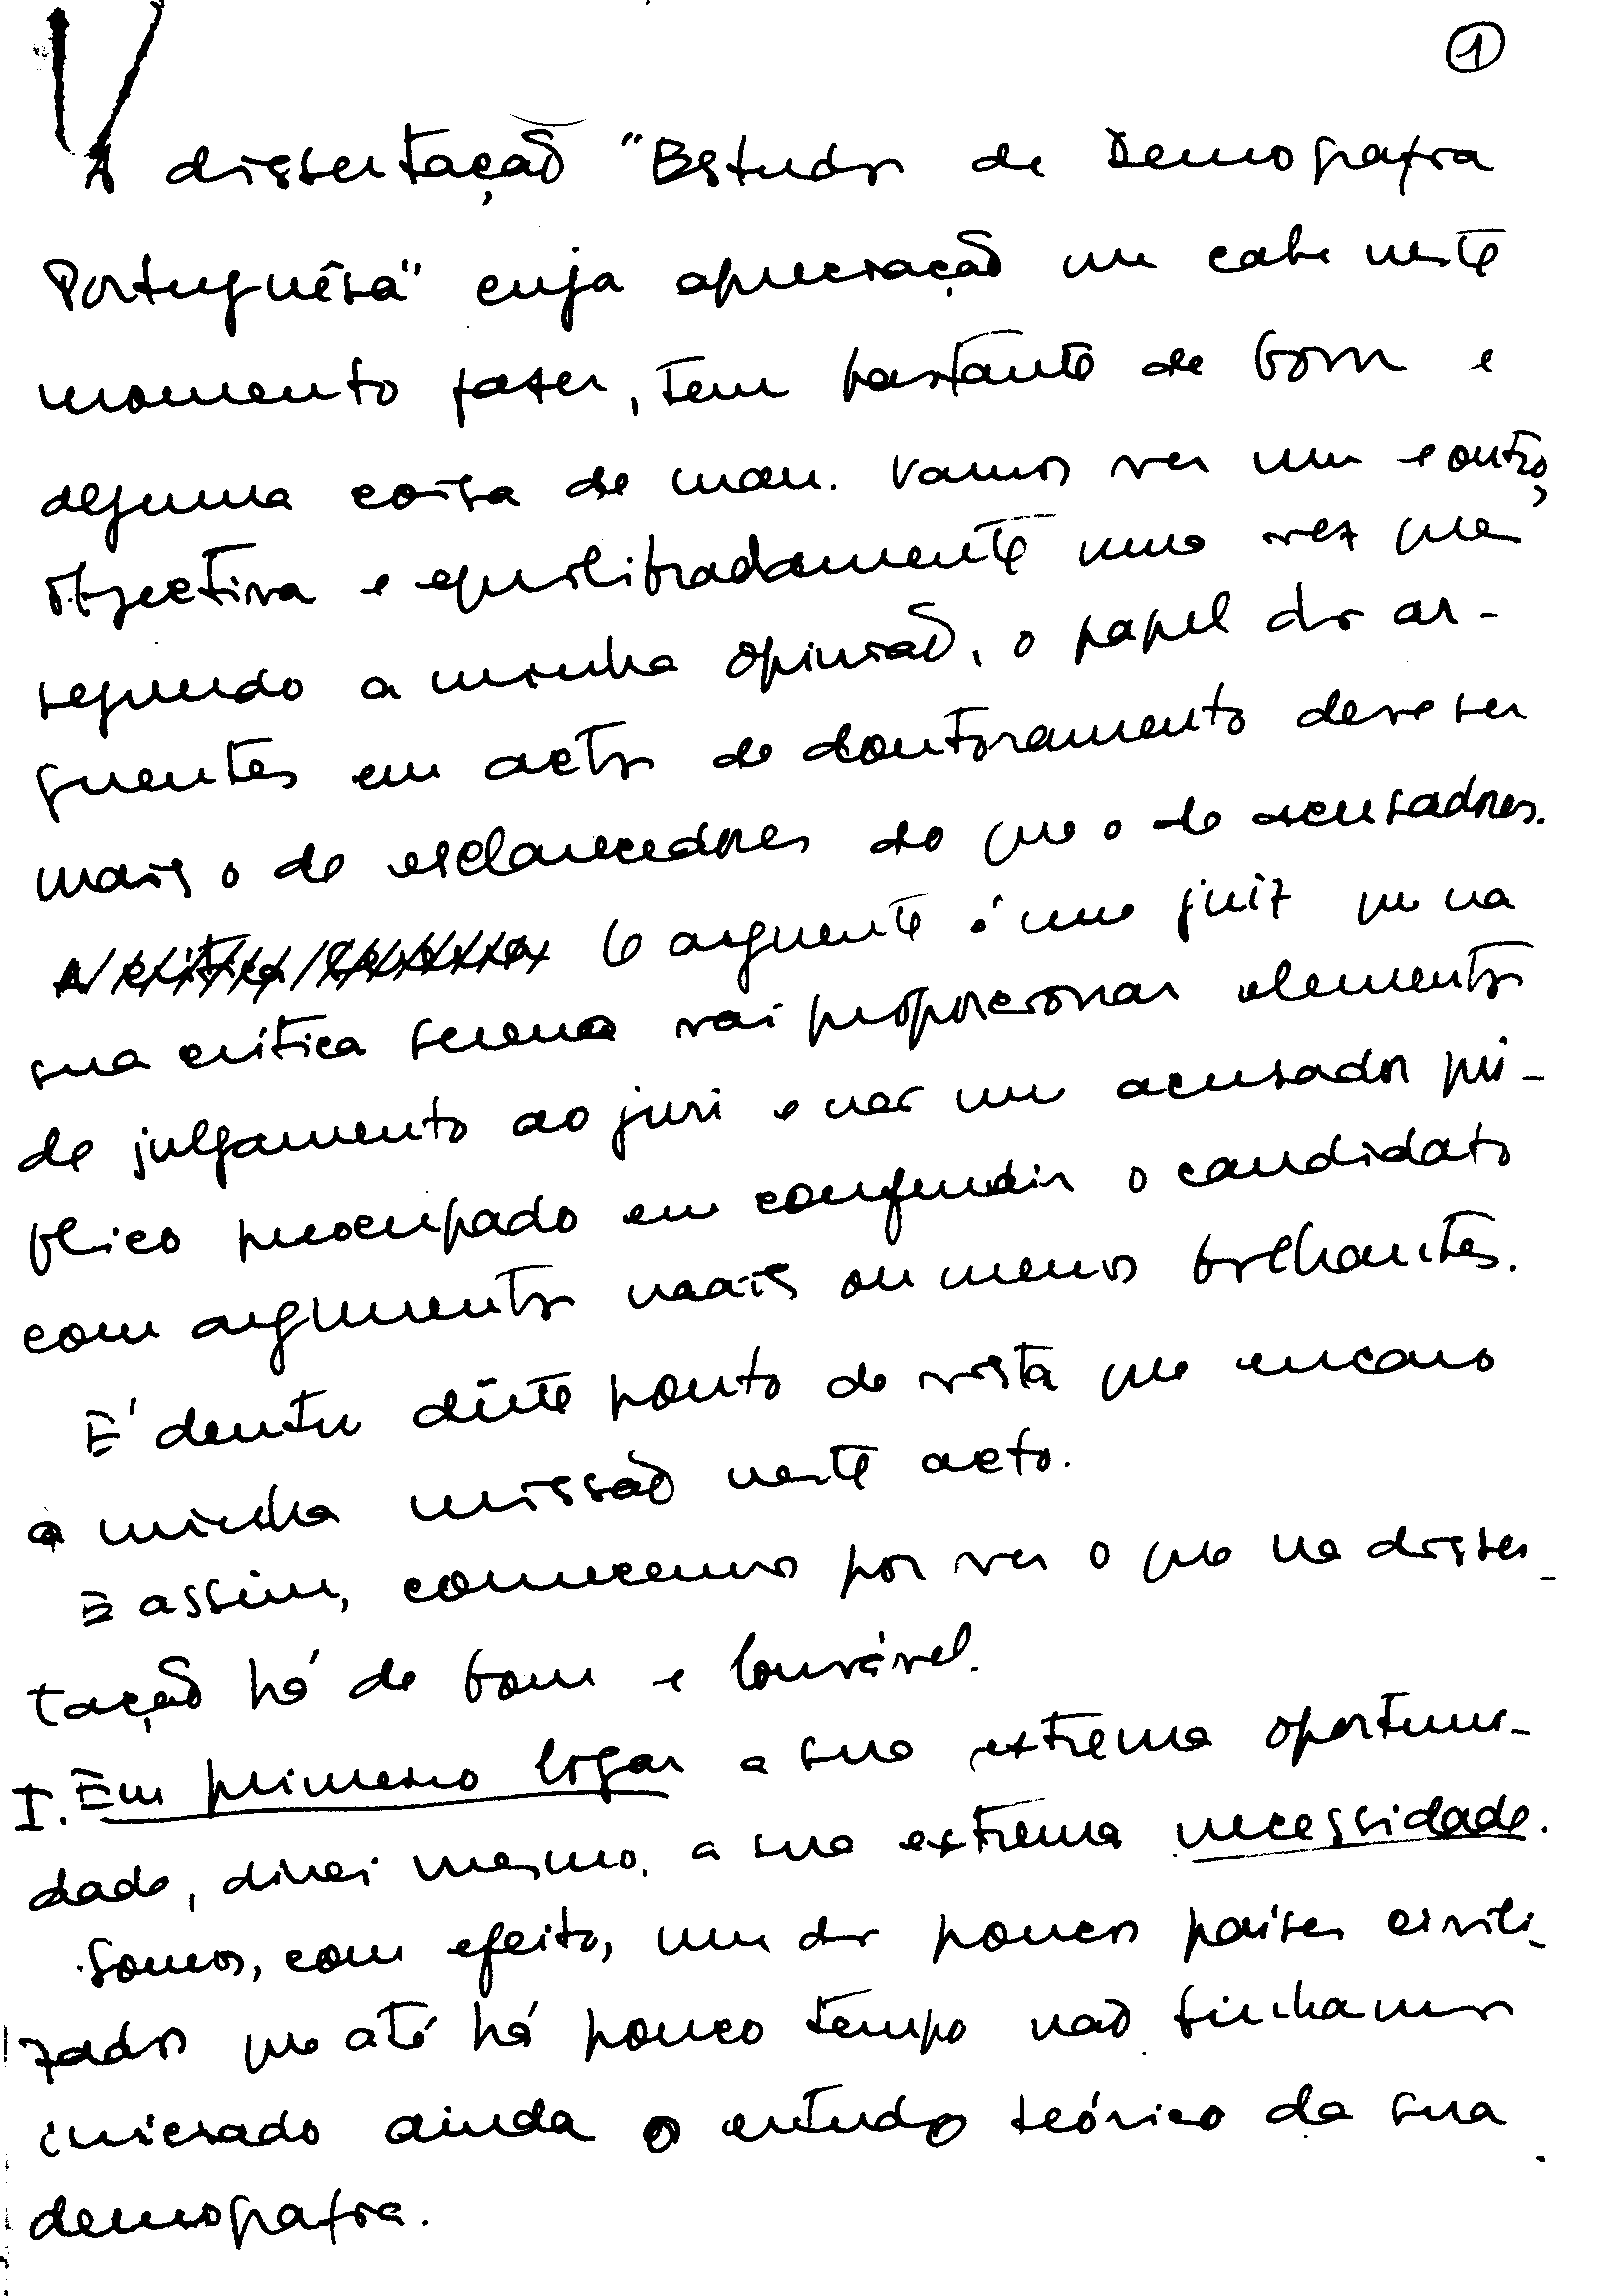 1
A dissertação "Estudos de Demografia
Portuguêsa" cuja apreciação me cabe neste
momento fazer, tem bastante de bom e
alguma coisa de mau. Vamos ver um e outro,
objectiva e equilibradamente uma vez que
segundo a minha opinião, o papel dos ar-
guentes em actos de doutoramento deve ser
mais o de esclarecedores do que o de acusadores.
O arguente é um juiz que na
sua critica serena vai proporcionar elementos
de julgamento ao juri e não um acusador pú-
blico preocupado em confundir o candidato
com argumentos mais ou menos brilhantes.
É dentro dêste ponto de vista que encaro
a minha missão neste acto.
E assim, comecemos por ver o que na disser-
tação há de bom e louvável.
I. Em primeiro logar a sua extrema oportuni-
dade, direi mesmo, a sua extrema necessidade.
Somos, com efeito, um dos poucos paises civili-
zados que até há pouco tempo não tinhamos
iniciado ainda o estudo teórico da sua
demografia.